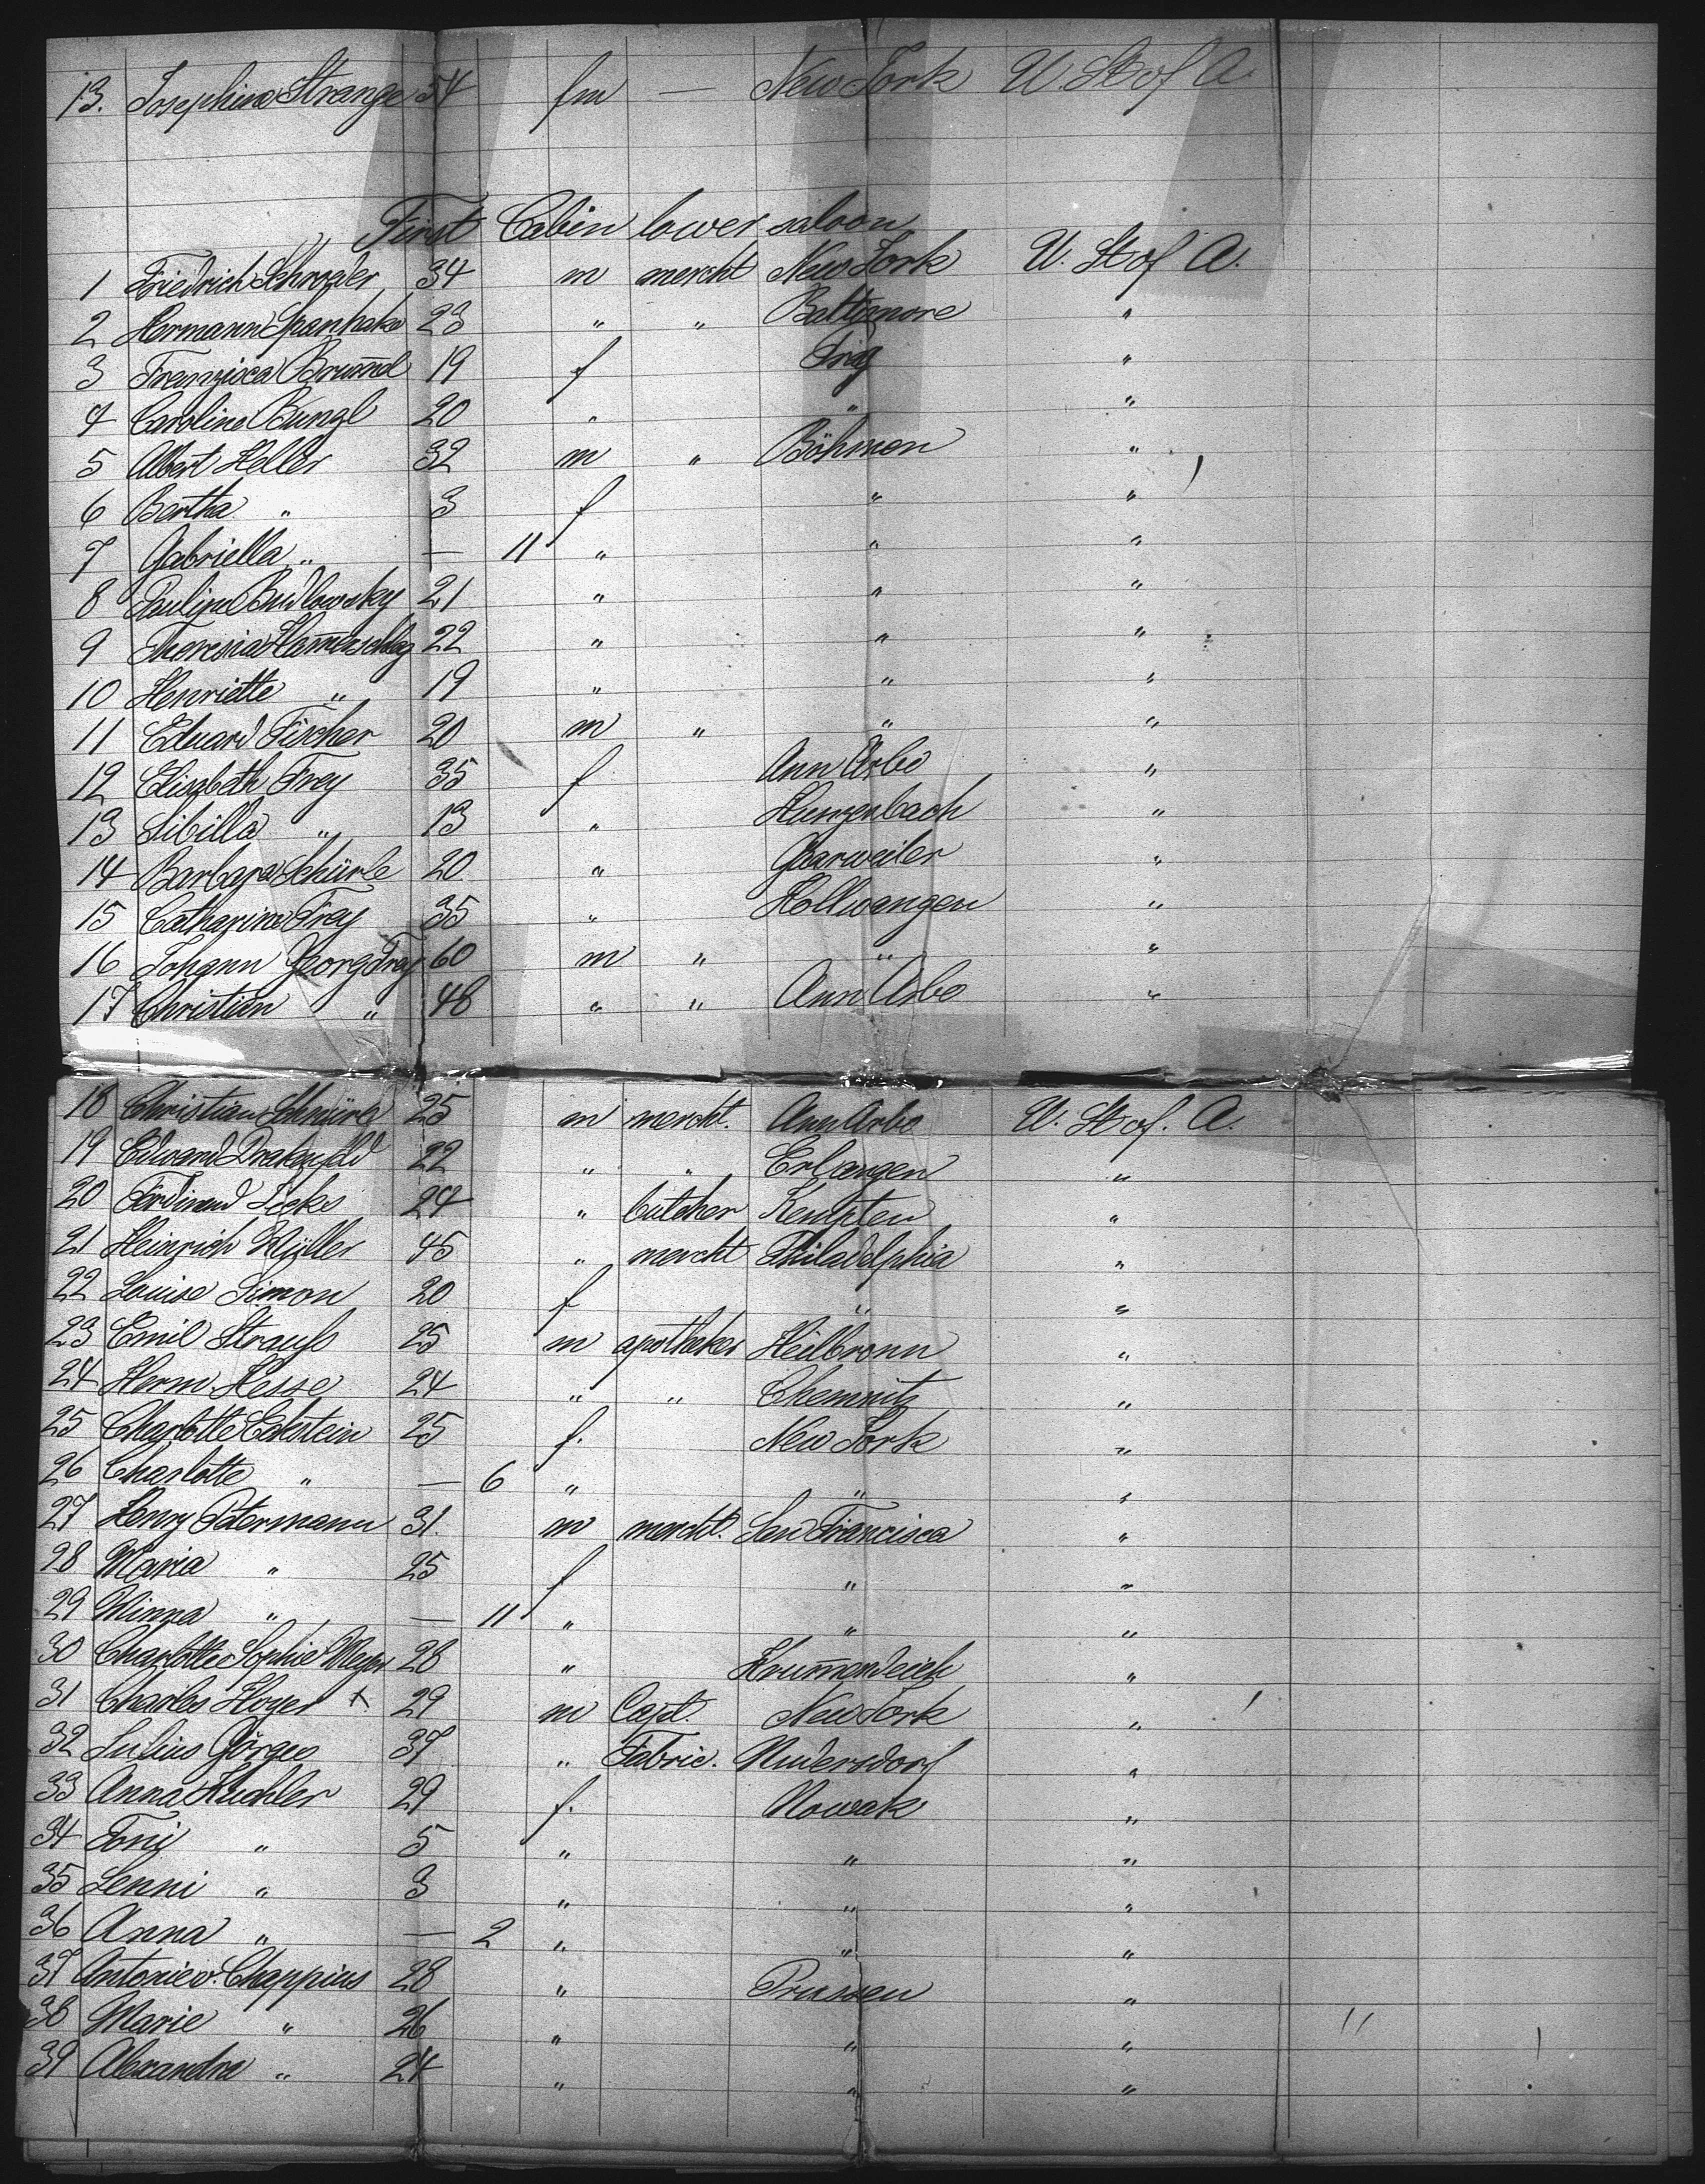 13. Josephine Strange 54 fm — New York U. St of A.
First Cabin lower saloon
1 Friedrich Schroder 34 m mercht New York U. St of A.
2 Hermann Spanhake 23 " " Baltimore "
3 Franzisca Brum̄el 19 f "
4 Caroline Bungl 20 " " "
5 Albert Heller 32 m " Böhmen "
6 Bertha " 3 f " "
7 Gabriella " — 11 " " "
8 Pauline Budlowsky 21 " " "
9 Theresia Ham̄erschlag 22 " " "
10 Henriette " 19 " " "
11 Eduard Fischer 20 m " " "
12 Elisabeth Frey 35 f Ann Arbo "
13 Sibilla " 13 " "
14 Barbara 20 " Garweiler "
15 Catharine Frey 35 " Hollwangen "
16 Johann Georg Frey 60 m " " "
17 Christian " 48 " " Ann Arbo "
18 Christian 25 m mercht. Ann Arbo U. St of. A.
19 Edward Drakenfeld 22 " " Erlangen "
20 Ferdinand 24 " butcher Kempten "
21 Heinrich Müller 45 " mercht Philadelphia "
22 Louise Simon 20 f " "
23 Emil Strauß 25 m apotheker Heilbronn "
24 Herm. Hesse 24 " " Chemnitz "
25 Charlotte Eckstein 25 f. New York "
26 Charlotte " — 6 " " "
27 Henry Petermann 31. m mercht. San Francisca "
28 Maria " 25 f " "
29 Minna " — 11 " " "
30 Charlotte Sophie Meyer 28 " Krum̄endeich "
31 Charles Hoyer x 29 m Capt. New York "
32 Julius Görges 37 " Fabric. "
33 Anna Kuchler 29 f. Nowak "
34 Toni " 5 " " "
35 Jenni " 3 " " "
36 Anna " — 2 " " "
37 Antonie v. Chappius 28 " Prussen "
38 Marie " 26 " " "
39 Alexandra " 24 " " "